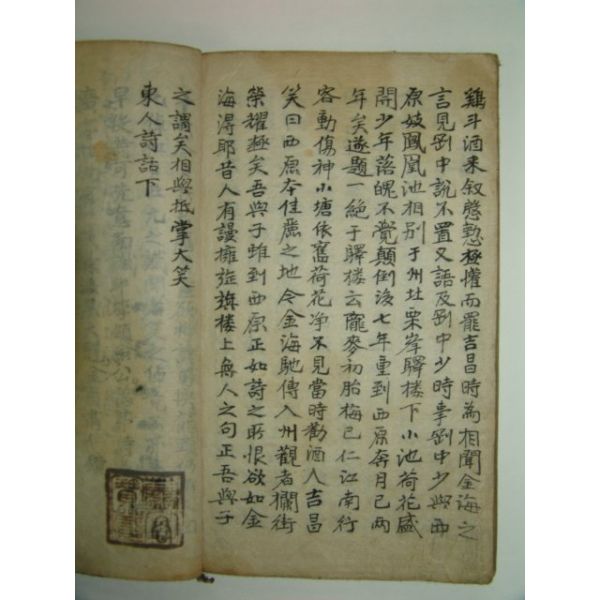 鷄斗酒来叙慇懃極懽而罷吉昌時為相聞金海之
言見劉中說不置又語及劉中少時事劉中少與西
原妓鳳凰池相别于州北栗峯驛楼下小池荷花盛
開少年落魄不覺顛倒後七年重到西原奔月已兩
年矣遂題一絶于驛楼云隴麥初胎梅已仁江南行
客動傷神小塘依舊荷花净不見當時勸酒人吉昌
笑曰西原本佳麗之地令金海馳傳入州觀者欄街
榮耀極矣吾與子雖到西原正如詩之所恨欲如金
海得耶昔人有謾擁旌旗楼上無人之句正吾與子
之謂矣相與抵掌大笑
東人詩話下